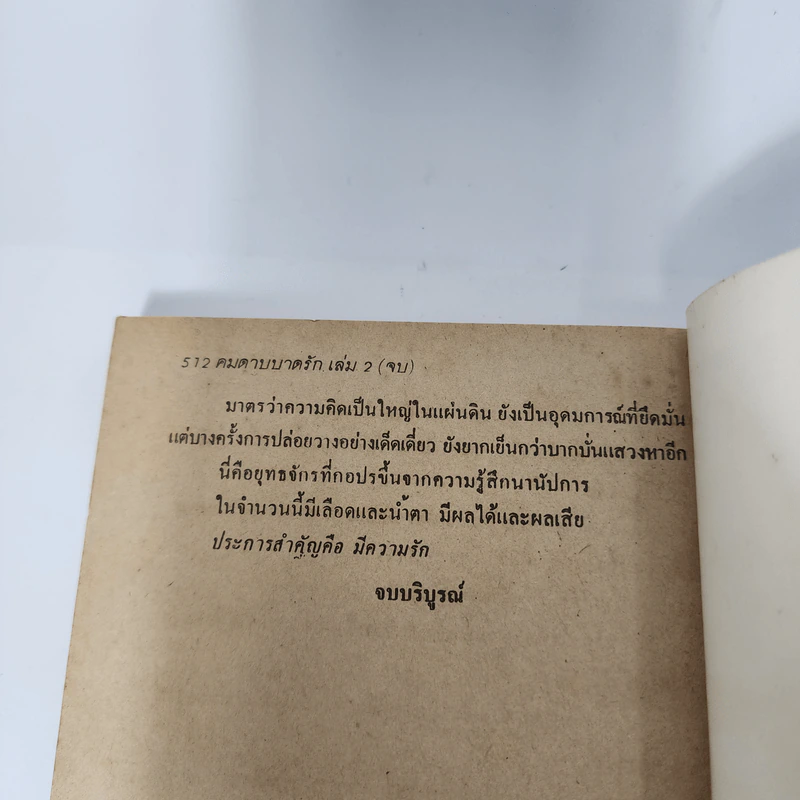 512 คมดาบบาดรัก เล่ม 2 (จบ)
มาตรว่าความคิดเป็นใหญ่ในแผ่นดิน ยังเป็นอุดมการณ์ที่ยึดมั่น
แต่บางครั้งการปล่อยวางอย่างเด็ดเดี่ยว ยังยากเย็นกว่าบากบั่นแสวงหาอีก
นี่คือยุทธจักรที่กอปรขึ้นจากความรู้สึกนานัปการ
ในจำนวนนี้มีเลือดและน้ำตา มีผลได้และผลเสีย
ประการสำคัญคือ มีความรัก
จบบริบูรณ์